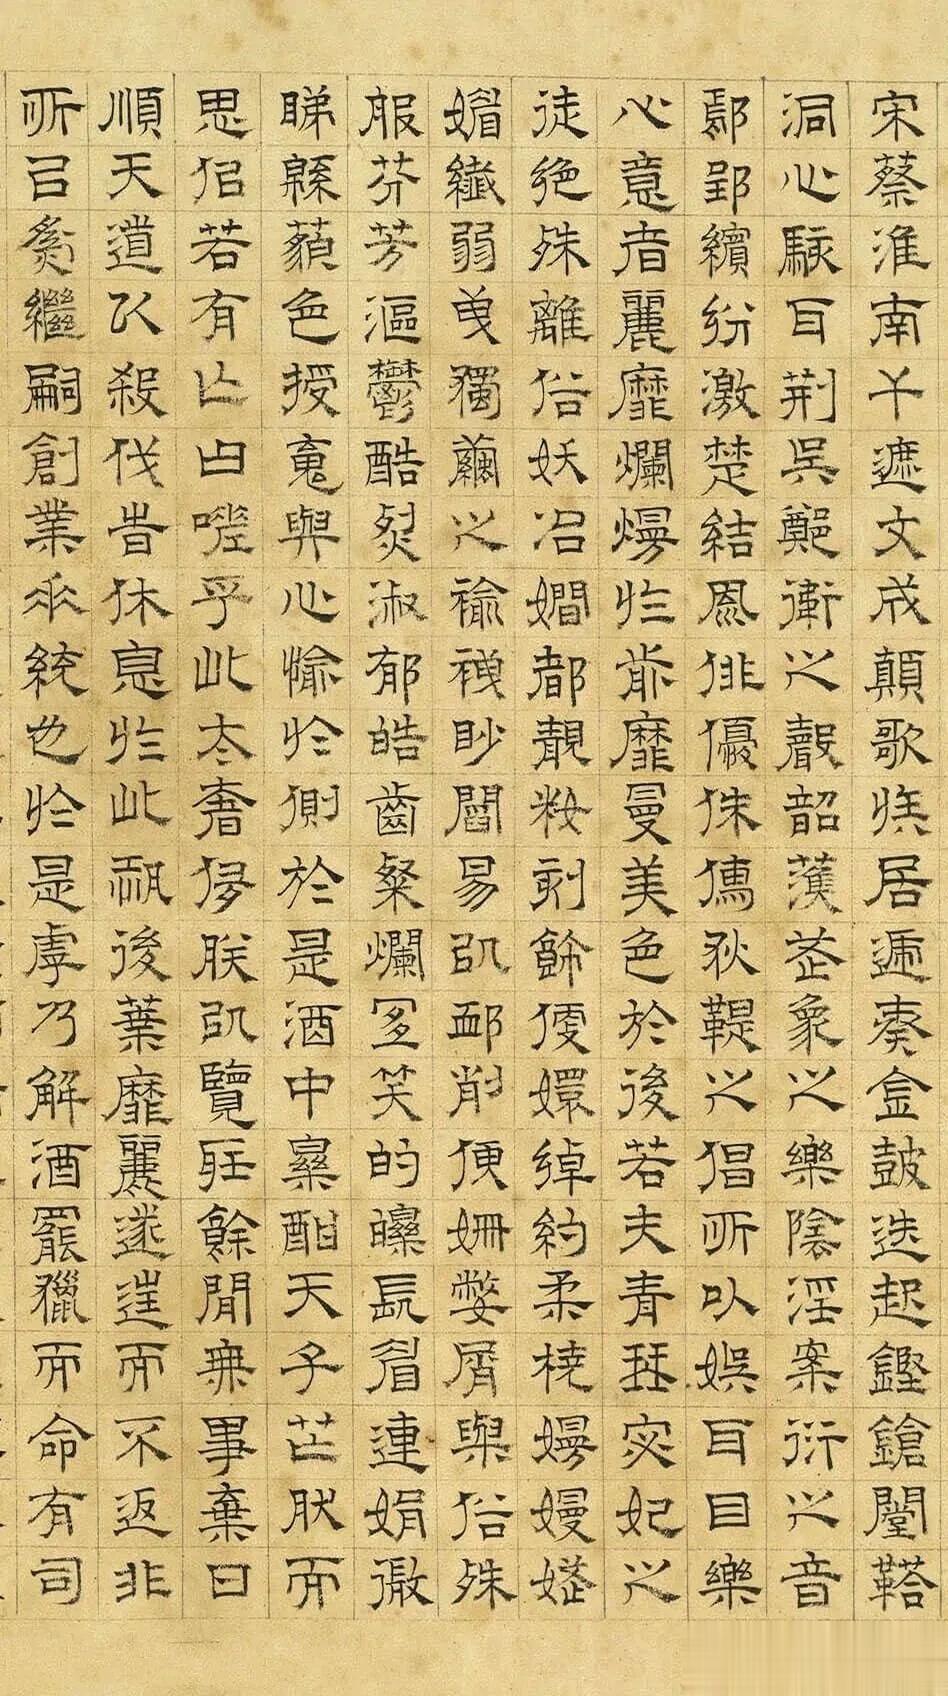 宋蔡淮南干遮文成顛歌族居遞奏金鼓迭起鏗鎗闛鞈
洞心駭耳荆吳鄭衛之聲韶濩武象之樂陰淫案衍之音
鄢郢繽紛激楚結風俳優侏儒狄鞮之倡所以娛耳目樂
心意者麗靡爛熳於前靡曼美色於後若夫青琴宓妃之
徒絕殊離俗妖冶嫺都靚糚刻飾便嬛綽約柔橈嫚嫚嫵
媚纖弱曳獨繭之褕袣眇閻易以卹削便姍嫳屑與俗殊
服芬芳漚鬱酷烈淑郁皓齒粲爛宜笑的皪長眉連娟微
睇緜藐色授魂與心愉於側於是酒中樂酣天子芒然而
思佀若有亡曰嗟乎此太奢侈朕以覽聽餘閒無事棄日
順天道以殺伐時休息於此恐後葉靡麗遂往而不返非
所以爲繼嗣創業垂統也於是虖乃解酒罷獵而命有司